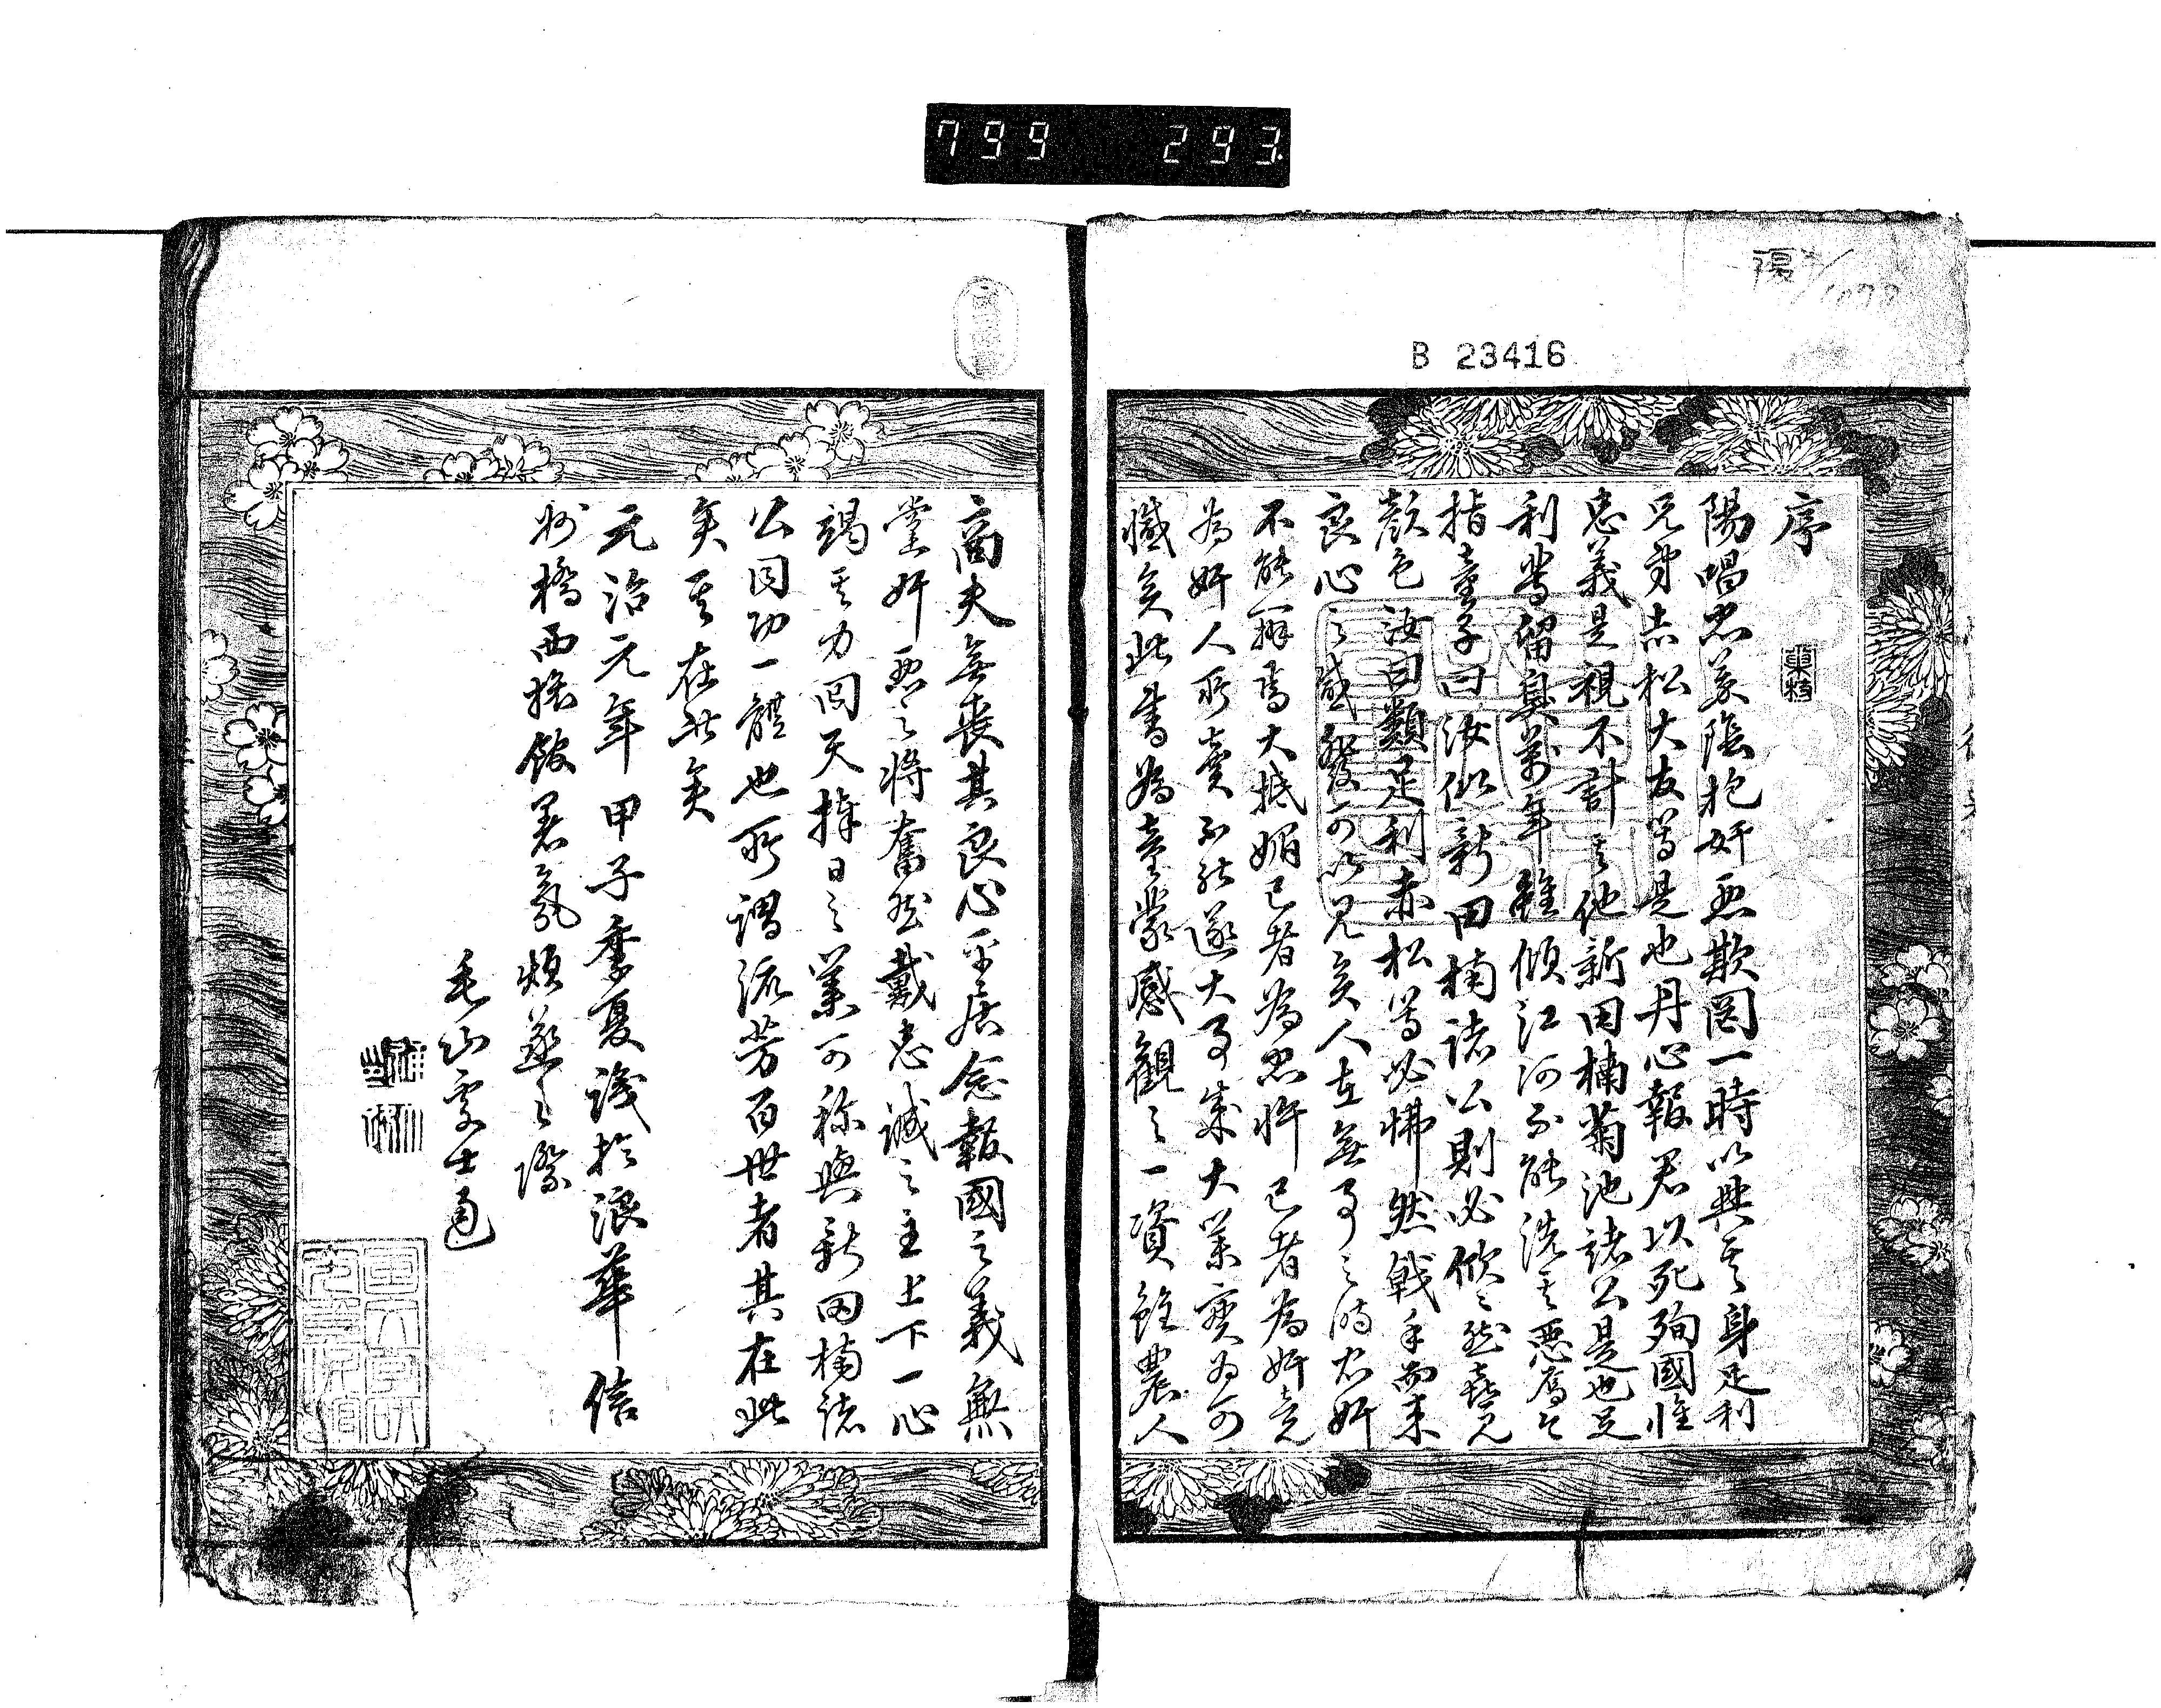 799 293
B 23416
序
陽唱忠義陰抱奸惡欺罔一時以興其身足利
兄弟赤松大友等是也丹心報君以死殉國惟
忠義是視不計其他新田楠菊池諸公是也足
利輩留臭萬年雖傾江河不能洗其惡焉今
指童子曰汝似新田楠諸公則必欣々然喜見
顔色汝曰類足利赤松等必怫然戟手而来
良心之感發可以見矣人在無事之時忠奸
不能辨焉大抵媚己者為忠忤己者為奸竟
為奸人所賣不能遂大事築大業實為可
憾矣此書為童蒙感觀之一資雖農人
商夫無喪其良心平居念報國之義無
黨奸惡之將奮然戴忠誠之主上下一心
竭其力回天捧日之業可称與新田楠諸
公同功一體也所謂流芳百世者其在此
矣其在此矣
元治元年甲子季夏識於浪華信
州橋西搖館暑氣煩蒸之際
毛山處士